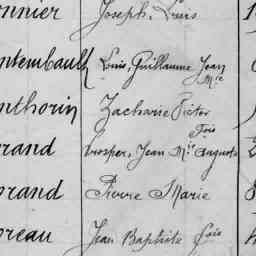 onnier Joseph, Louis
ntembault Louis, Guillaume Jean
Mie
nthorin Zacharie Victor
Fois
rand Prosper, Jean Mie Auguste
orand Pierre Marie
oreau Jean Baptiste Fois